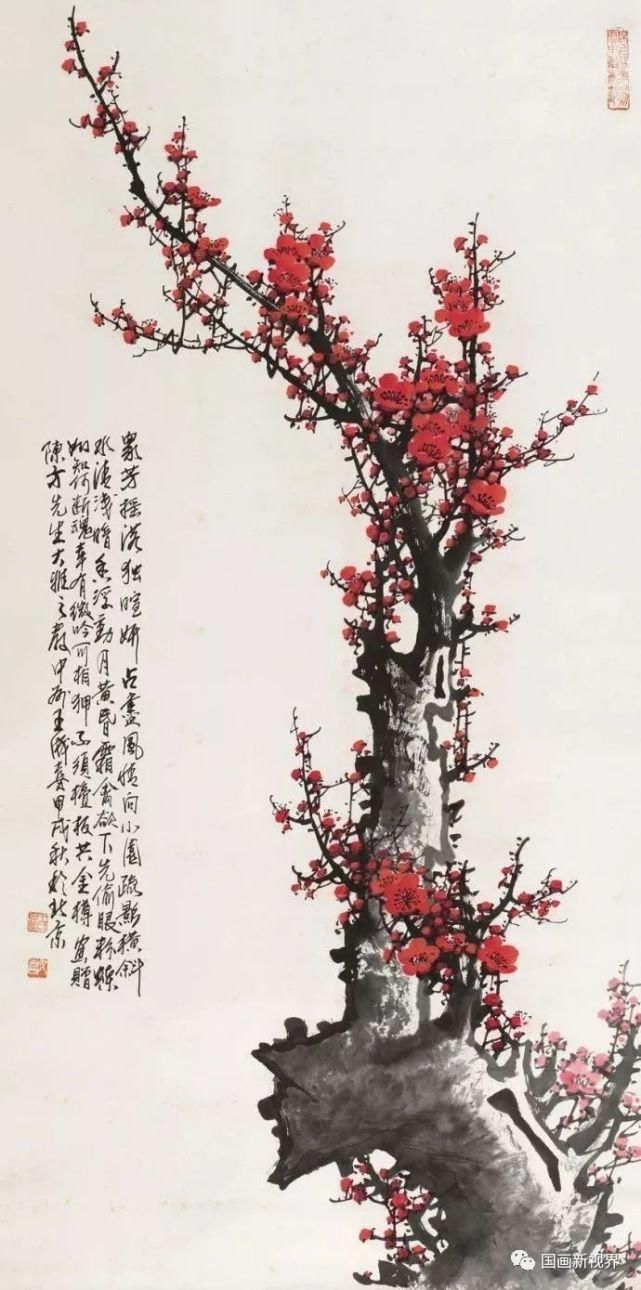 眾芳摇落独暄妍占盡風情向小園疏影横斜
水清淺暗香浮動月黄昏霜禽欲下先偷眼粉蝶
如知合断魂幸有微吟可相狎不須檀板共金樽寫贈
陳方先生大雅之教中州王成喜甲戌秋於北京
国画新视界